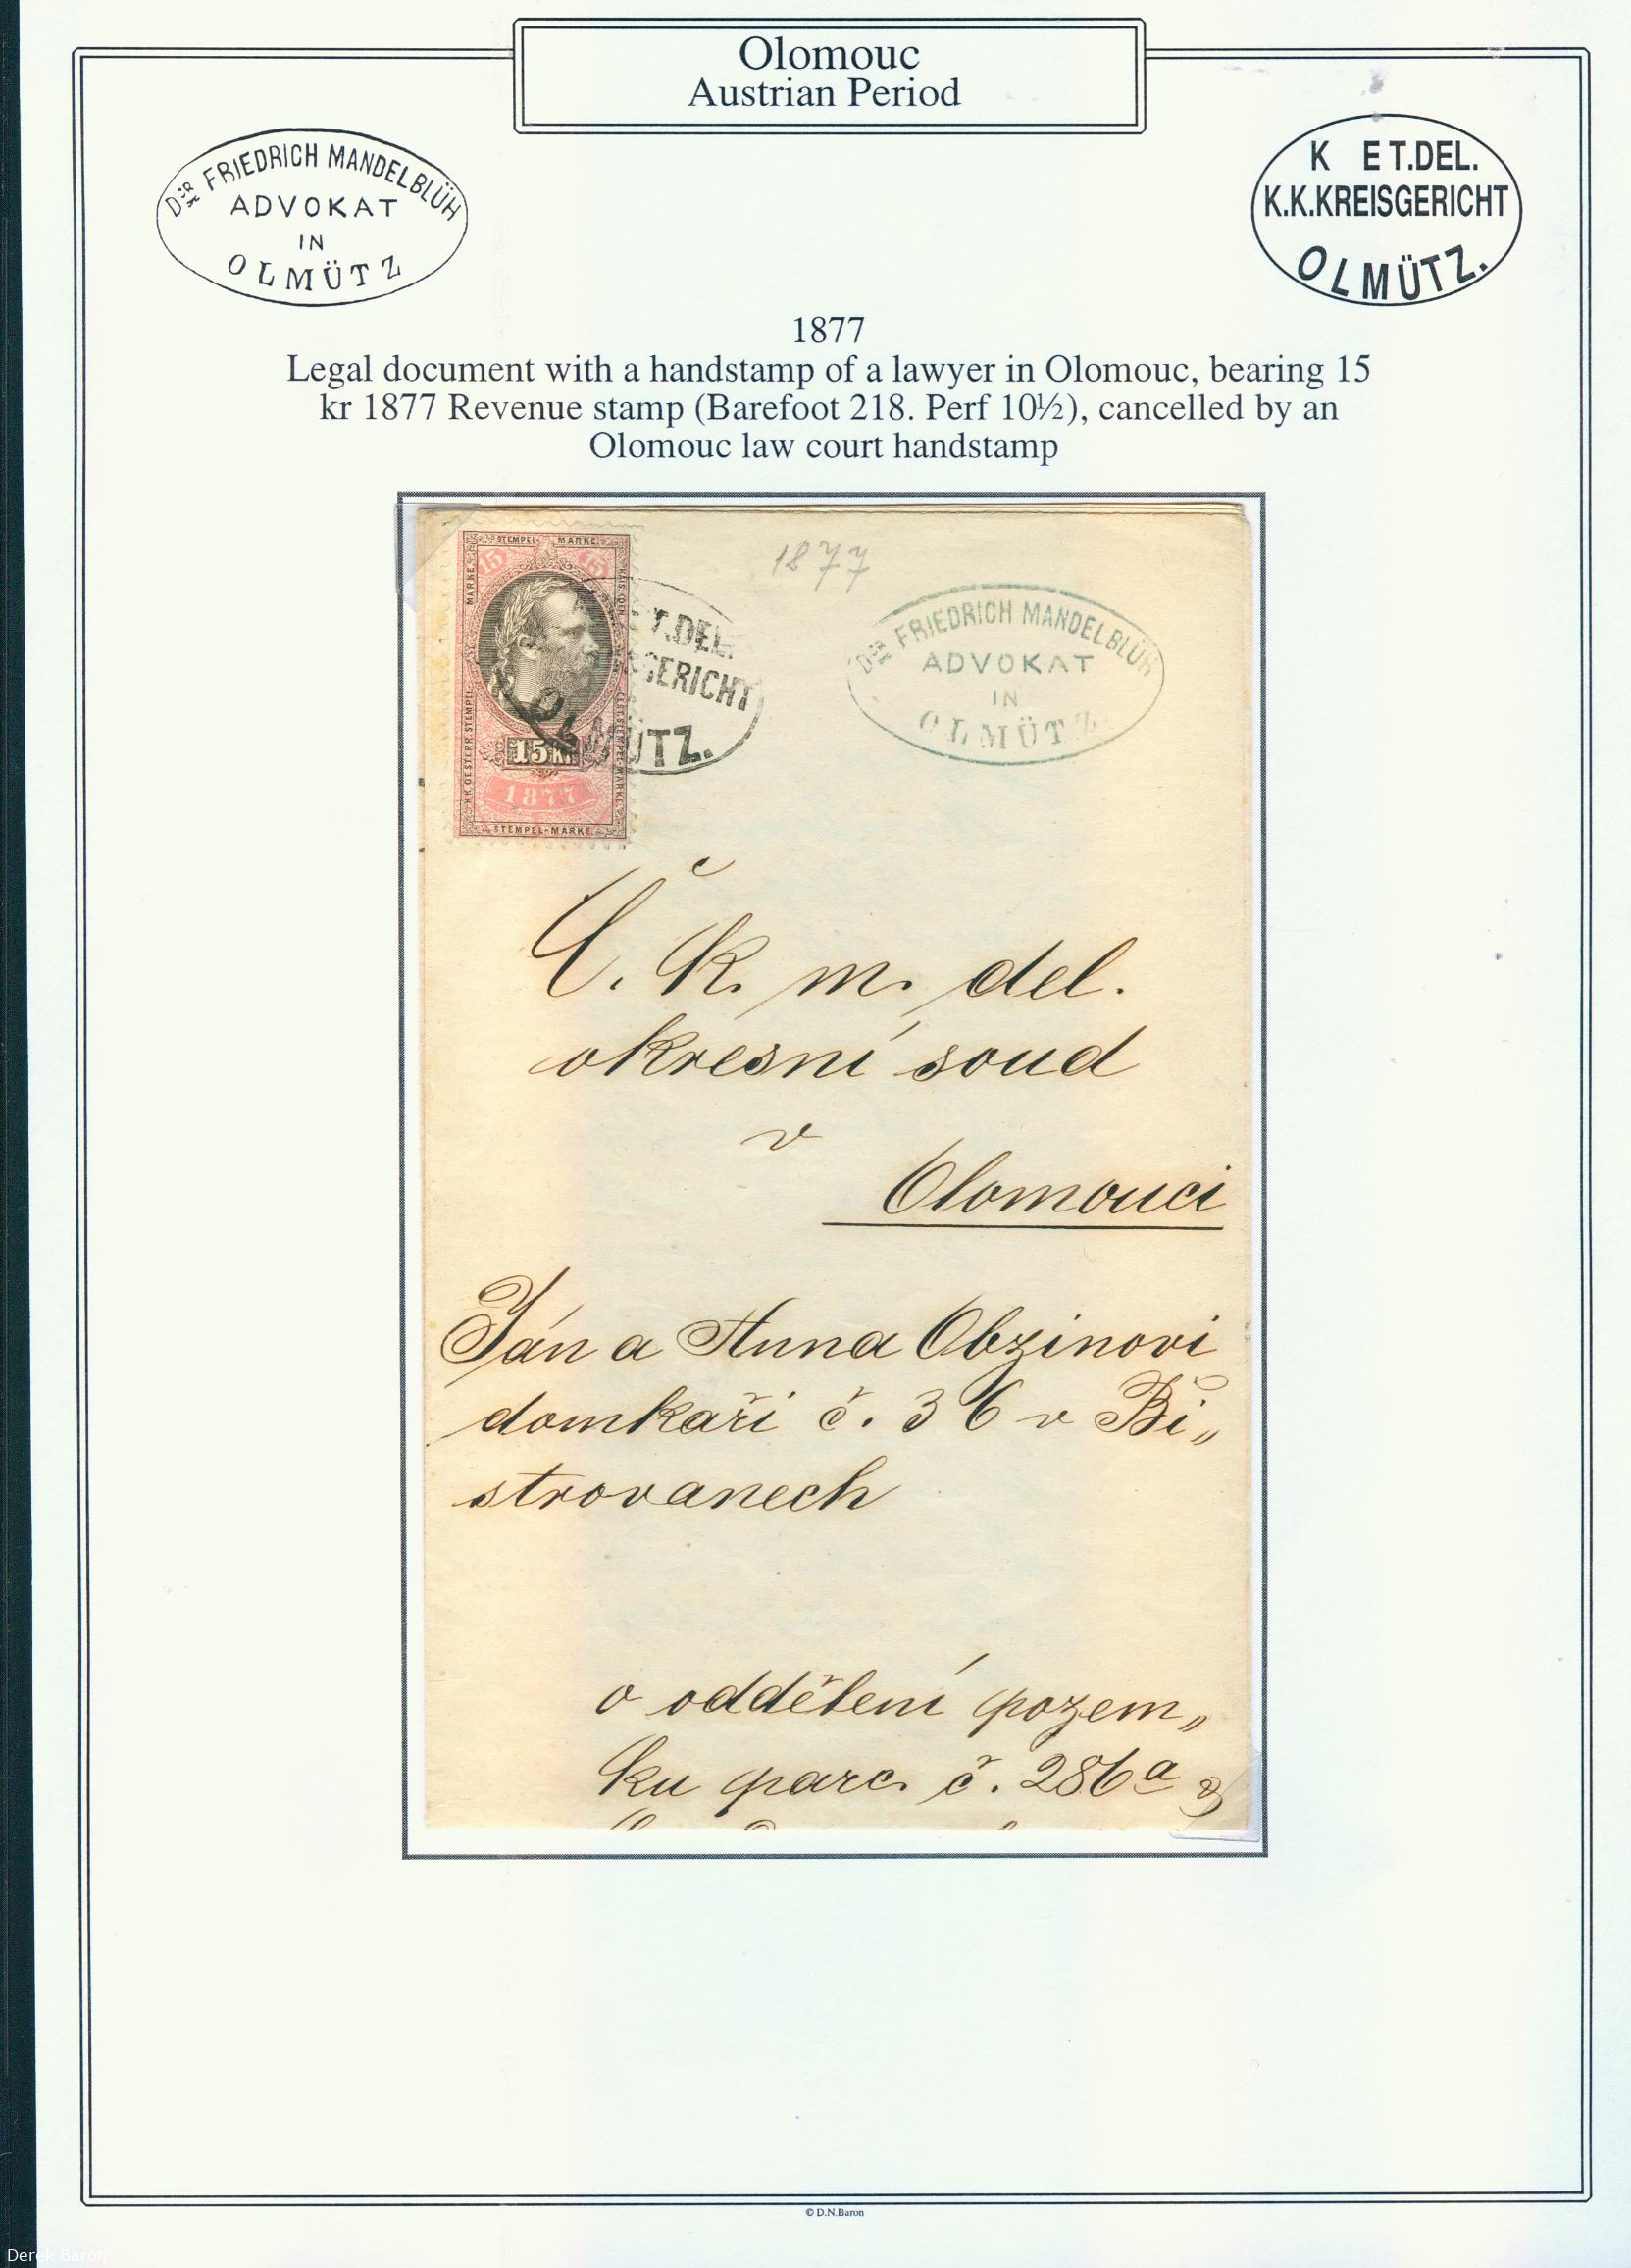 Olomouc
Austrian Period
Dr. FRIEDRICH MANDELBLÜH
ADVOKAT
IN
OLMÜTZ
K ET.DEL.
K.K.KREISGERICHT
OLMÜTZ.
1877
Legal document with a handstamp of a lawyer in Olomouc, bearing 15
kr 1877 Revenue stamp (Barefoot 218. Perf 10½), cancelled by an
Olomouc law court handstamp
STEMPEL- MARKE.
15 15
MARKE.
KAIS.KOEN.
K.K.OESTERR.STEMPEL-
OEST.STEMPEL-MARKE.
15 Kr.
1877
STEMPEL-MARKE.
T.DEL.
GERICHT
OLMÜTZ.
1877
Dr. FRIEDRICH MANDELBLÜH
ADVOKAT
IN
OLMÜTZ
C. k. m. del.
okresní soud
v
Olomouci
Ján a Anna Obzinovi
domkaři č. 36 v Bi„
strovanech
o oddělení pozem„
ku parc. č. 286a z
© D.N.Baron
Derek Baron